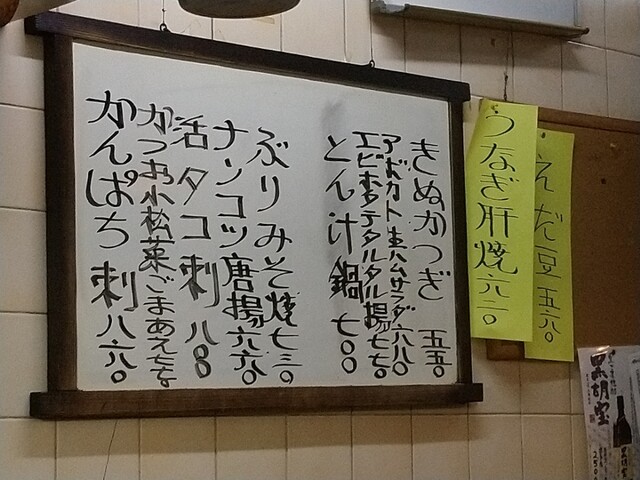 えだ豆 五六〇
うなぎ肝焼 六二〇
きぬかつぎ 五五〇
アボカト生ハムサラダ 六八〇
エビホタテタルタル揚 七七〇
とん汁鍋 七〇〇
ぶりみそ焼 七三〇
ナンコツ唐揚 六六〇
活タコ刺 八〇
かつお小松菜ごまあえ
かんぱち刺 八六〇
黒胡宝